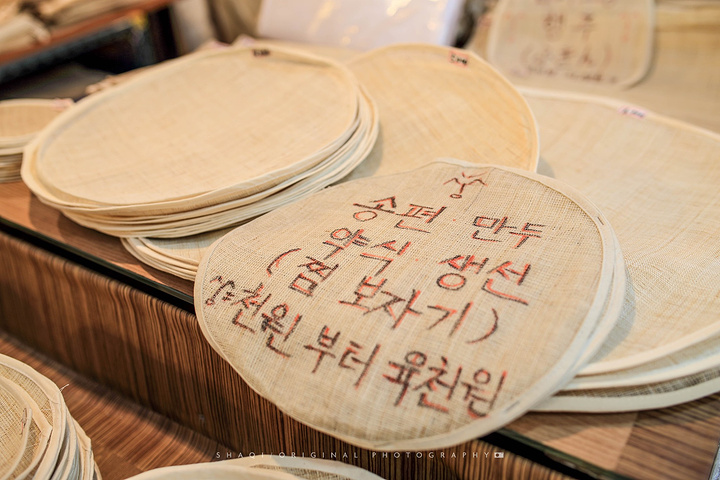 송편 만두
약식 생선
(찜 보자기)
천원 부터 육천원
SHAOLI ORIGINAL PHOTOGRAPHY